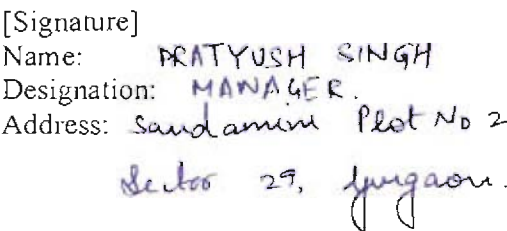 [Signature]
Name: PRATYUSH SINGH
Designation: MANAGER.
Address: Saudamini Plot No 2
Sector 29, Gurgaon.